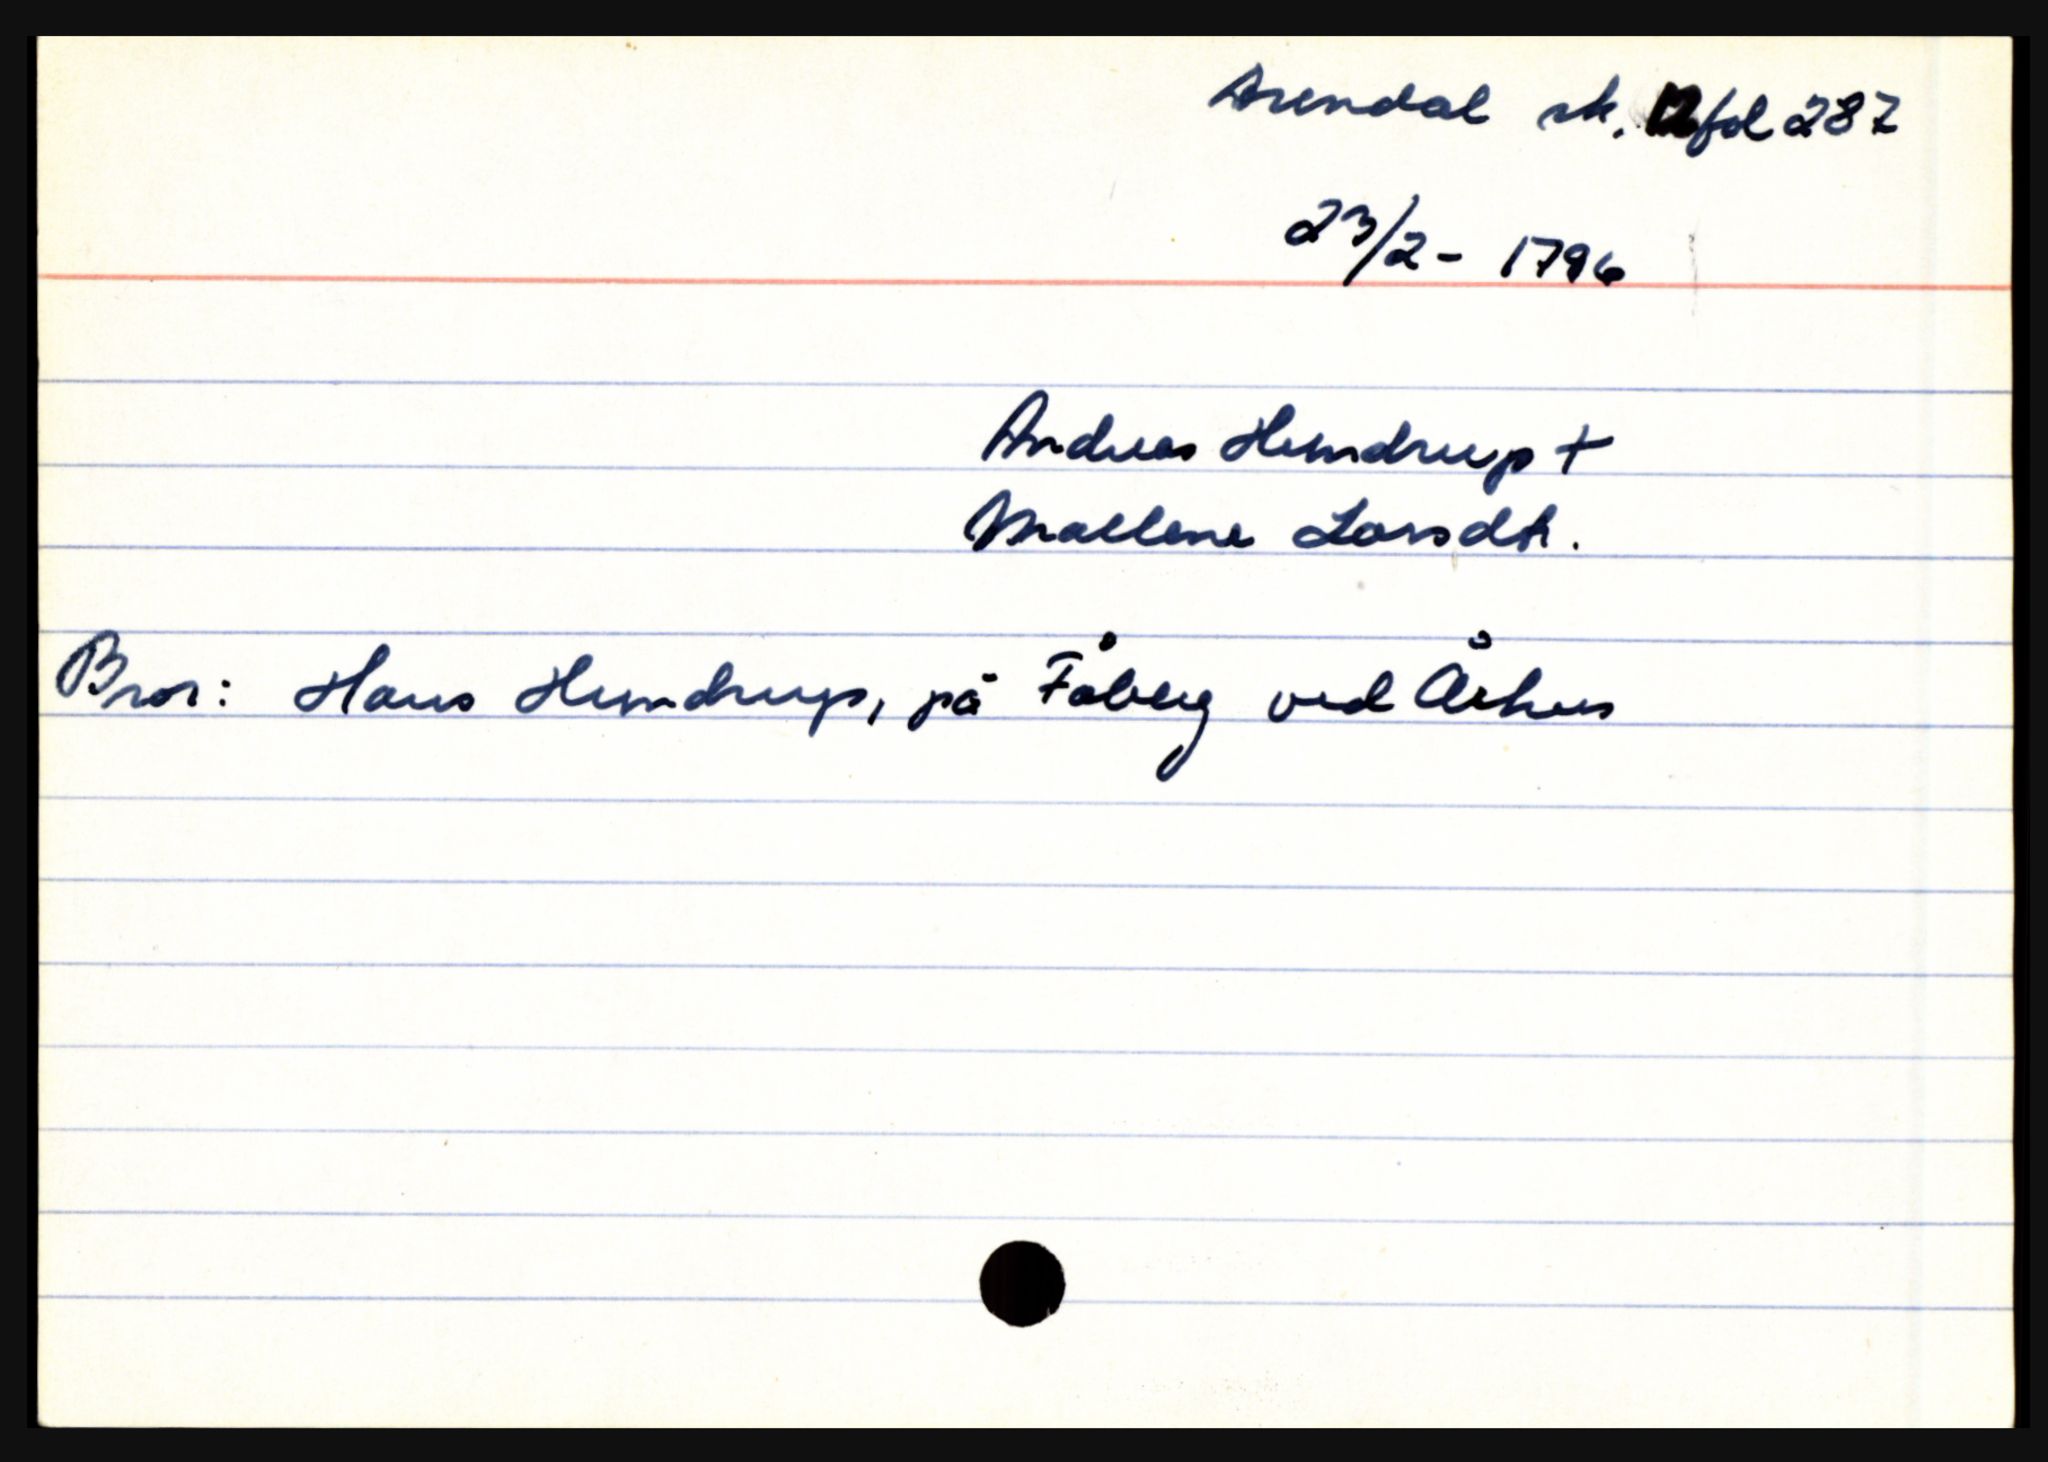 Arendal sk. 12 fol 287
23/2 - 1796
Andreas Hemdrup +
Mallene Larsdtr.
Bror: Hans Hemdrup, på Fåberg ved Århus